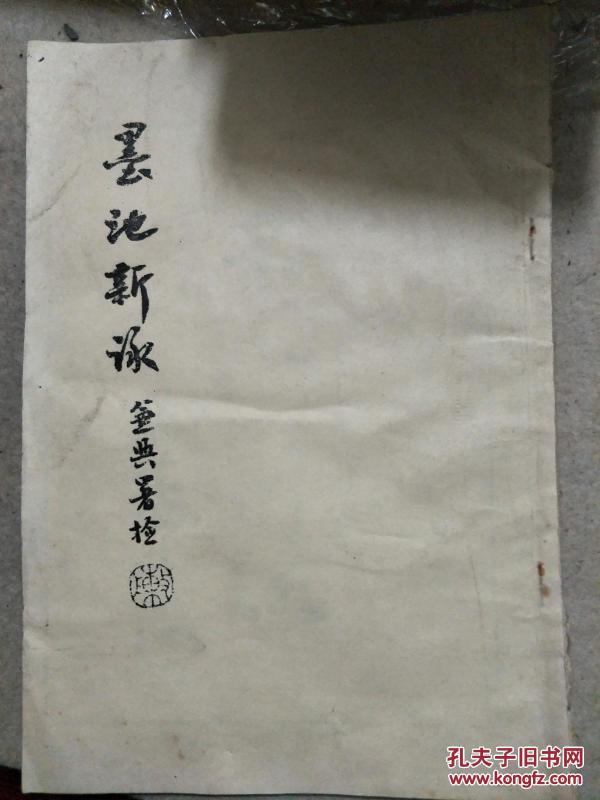 墨池新詠
兼與署檢
孔夫子旧书网
www.kongfz.com